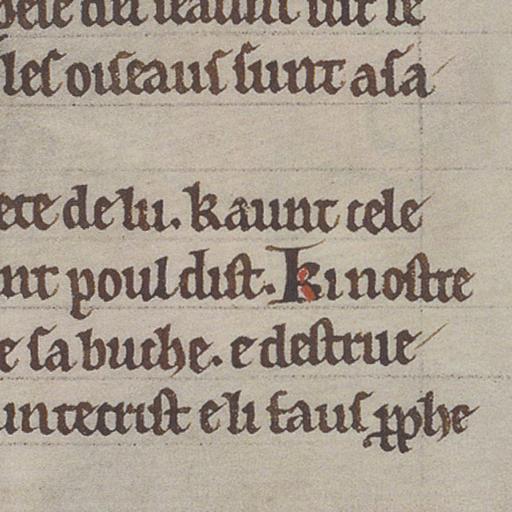 les oiseaus sunt a sa
ece de lui. kaunt cele
nt poul dist. Ki nostre
e sa buche. e destrue
untecrist e li faus pphe